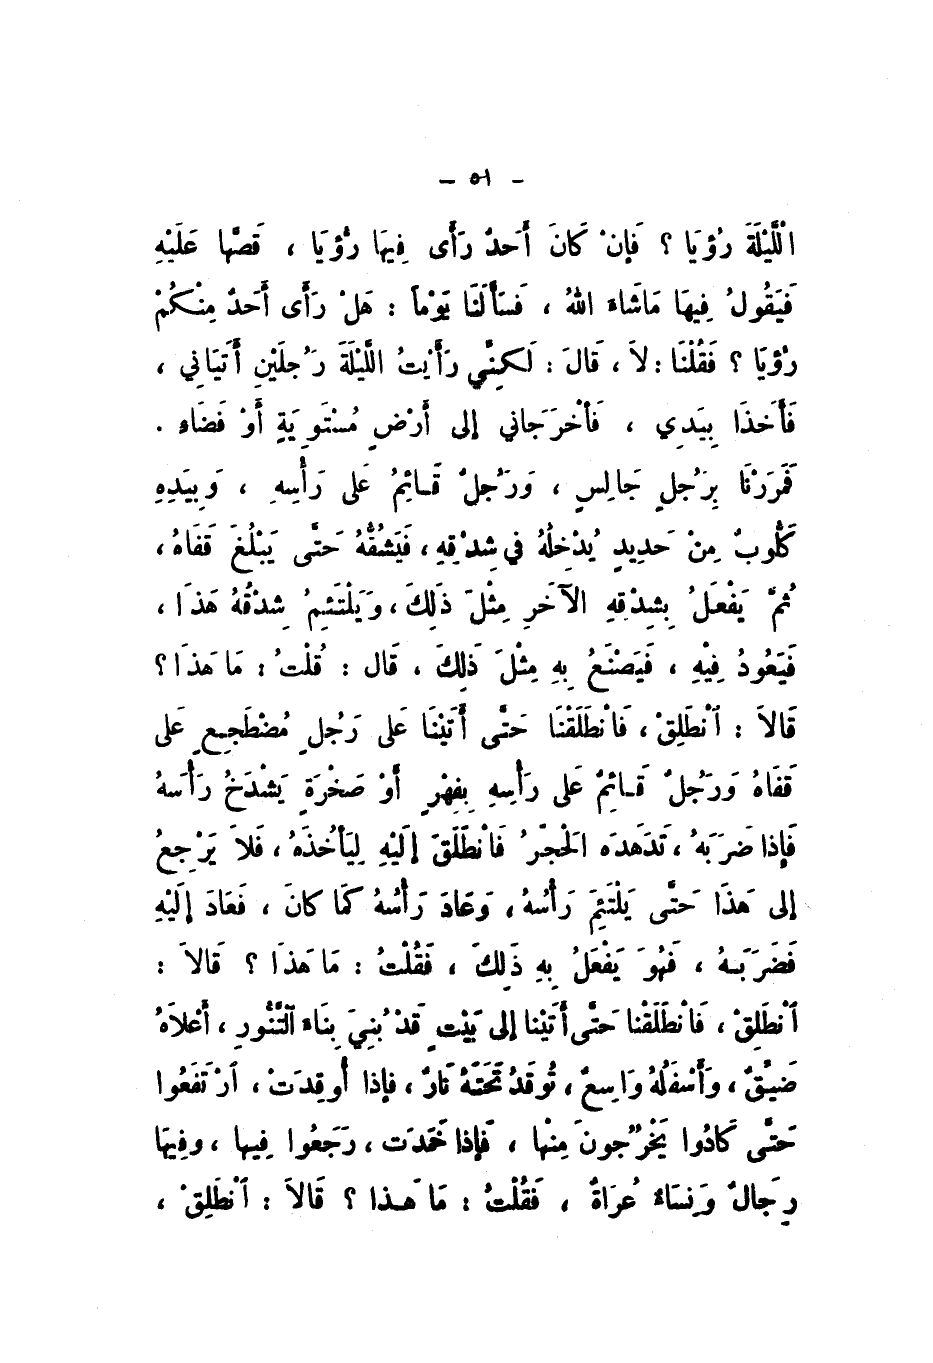 - ٥١ -
الْلَّيْلَةَ رُؤْيَا ؟ فَإِنْ كَانَ أَحَدٌ رَأَى فِيهَا رُؤْيَا ، قَصَّها عَلَيْهِ
فَيَقُولُ فِيهَا مَاشَاءَ اللهُ ، فَسَأَلَنَا يَوْماً : هَلْ رَأَى أَحَدٌ مِنْكُمْ
رُؤْيَا ؟ فَقُلْنَا : لاَ ، قَالَ : لَكِنِّي رَأَيْتُ اللَّيْلَةَ رَجُلَيْنِ أَتَيَانِي ،
فَأَخَذَا بِيَدِي ، فَأَخْرَجَاني إلى أَرْضٍ مُسْتَوِيَةٍ أَوْ فَضَاءٍ .
فَمَرَرْنَا بِرَجُلٍ جَالِسٍ ، وَرَجُلٌ قَـائِمٌ عَلَى رَأْسِهِ ، وَبِيَدِهِ
كَلُّوبٌ مِنْ حَدِيدٍ يُدْخِلُهُ في شِدْقِهِ ، فَيَشُقُّهُ حَتَّى يَبْلُغَ قَفَاهُ ،
ثُمَّ يَفْعَلُ بِشِدْقِهِ الآخَرِ مِثْلَ ذَلِكَ ، وَيَلْتَئِمُ شِدْقُهُ هَذَا ،
فَيَعُودُ فِيْهِ ، فَيَصْنَعُ بِهِ مِثْلَ ذَلِكَ ، قَال : قُلْتُ : مَا هَذَا ؟
قَالاَ : اَنْطَلِقْ ، فَانْطَلَقْنَا حَتَّى أَتَيْنَا عَلَى رَجُلٍ مُضْطَجِعٍ عَلَى
قَفَاهُ وَرَجُلٌ قَـائِمٌ عَلَى رَأْسِهِ بِفِهْرٍ أَوْ صَخْرَةٍ يَشْدَخُ رَأْسَهُ
فَإِذا ضَرَبَهُ ، تَدَهْدَه الْحَجَرُ فَانْطَلَقَ إلَيْهِ لِيَأْخُذَهُ ، فَلاَ يَرْجِعُ
إلى هَذَا حَتَّى يَلْتَئِمَ رَأْسُهُ ، وَعَادَ رَأْسُهُ كَمَا كانَ ، فَعَادَ إلَيْهِ
فَضَرَبَـهُ ، فَهُوَ يَفْعَلُ بِهِ ذَلِكَ ، فَقُلْتُ : مَا هَذا ؟ قالاَ :
اَنْطَلِقْ ، فَانْطَلَقْنا حَتَّى أَتَيْنا إلى بَيْتٍ قَدْ بُنِيَ بِنَاءَ التَّنُّورِ ، أَعْلاَهُ
ضَيِّقٌ ، وَأَسْفَلُهُ وَاسِعٌ ، تُوقَدُ تَحْتَهُ نَارٌ ، فَإذا أُوقِدَتْ ، اَرْتَفَعُوا
حَتَّى كَادُوا يَخْرُجونَ مِنْها ، فَإذا خَمَدَت ، رَجَعُوا فِيها ، وفِيهَا
رِجَالٌ وَنِسَاءٌ عُرَاةٌ ، فَقُلْتُ : مَا هَـذا ؟ قَالاَ : اَنْطَلِقْ ،